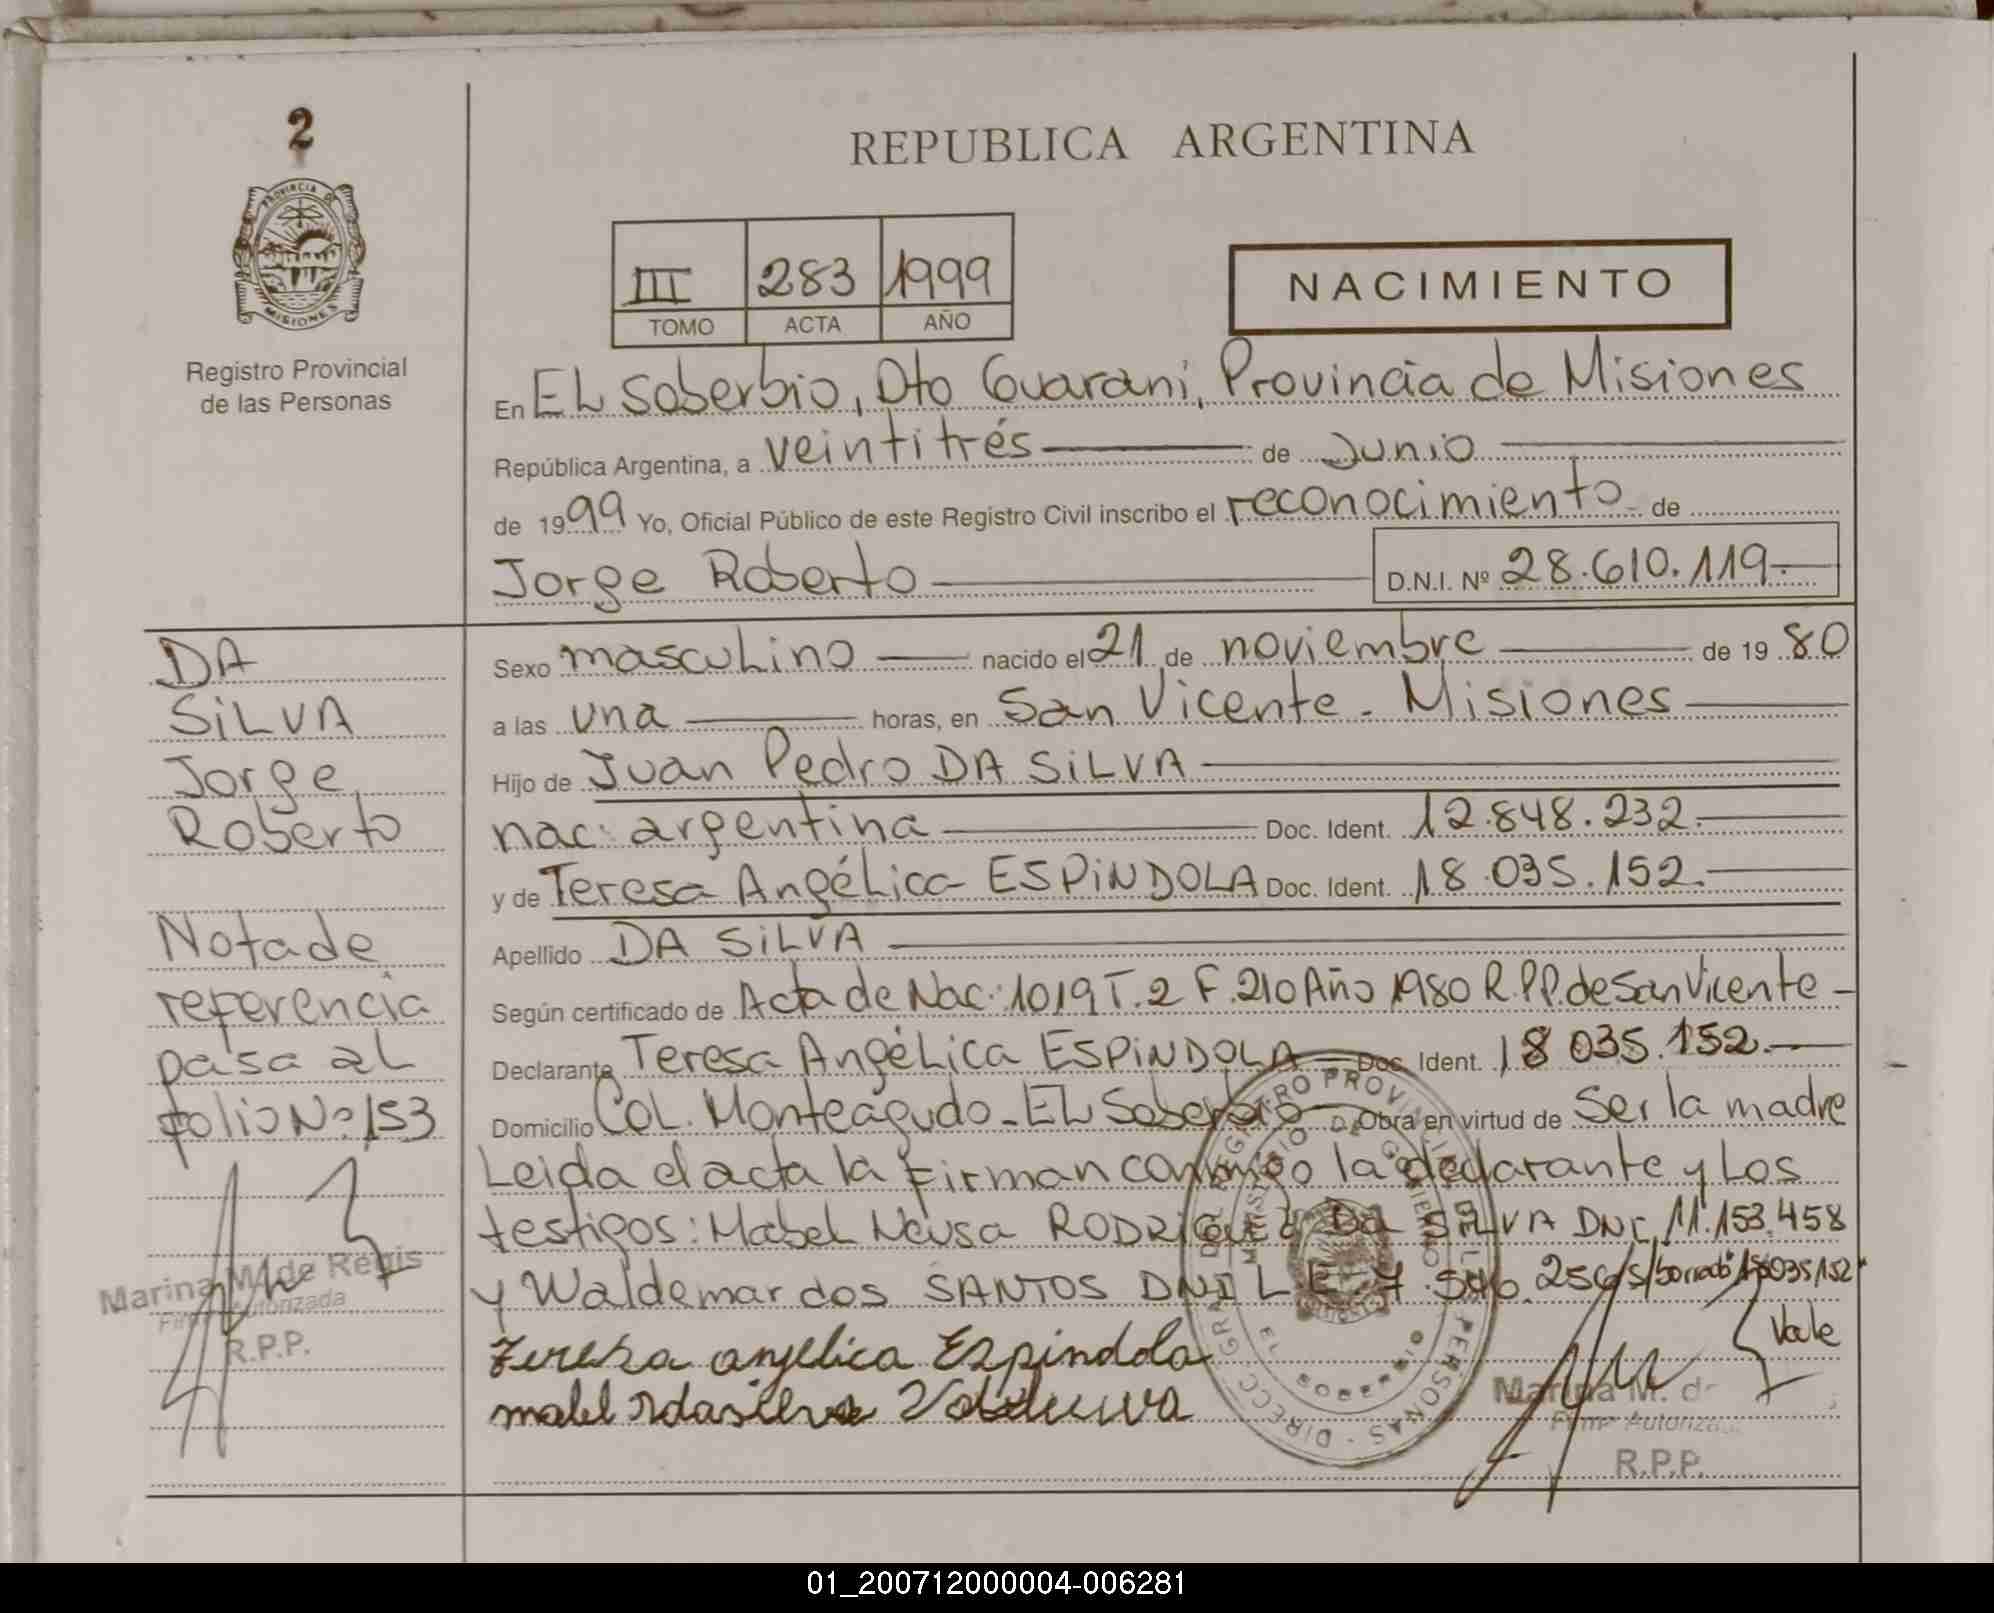 2
PROVINCIA DE
MISIONES
Registro Provincial
de las Personas
REPUBLICA ARGENTINA
III 283 1999
TOMO ACTA AÑO
NACIMIENTO
En EL Soberbio, Dto Guarani, Provincia de Misiones
República Argentina, a veintitrés de Junio
de 1999 Yo, Oficial Público de este Registro Civil inscribo el reconocimiento de
Jorge Roberto D.N.I. Nº 28.610.119-
DA
SiLVA
Jorge
Roberto
Nota de
referencia
pasa al
folio Nº 153
Marina M. de Regis
Firma Autorizada
R.P.P.
Sexo masculino nacido el 21 de noviembre de 1980
a las una horas, en San Vicente - Misiones
Hijo de Juan Pedro DA SiLVA
nac: argentina Doc. Ident. 12.848.232.
y de Teresa Angélica ESPiNDOLA Doc. Ident. 18.035.152.
Apellido DA SiLVA
Según certificado de Acta de Nac. 1019 T. 2 F. 210 Año 1980 R.P.P. de San Vicente -
Declarante Teresa Angélica ESPiNDOLA Doc. Ident. 18 035.152.-
Domicilio Col. Monteagudo - EL Soberbio Obra en virtud de Ser la madre
Leida el acta la firman conmigo la declarante y Los
testigos: Mabel Neusa RODRIGUEZ Da SiLVA DNI, 11.153.458
y Waldemar dos SANTOS DNI L E 7.546.256 s/borrado 18035152
Vale
Teresa angelica Espindola
Marina M. de
Firma Autoriza
R.P.P.
EL SOBERBIO
01_200712000004-006281